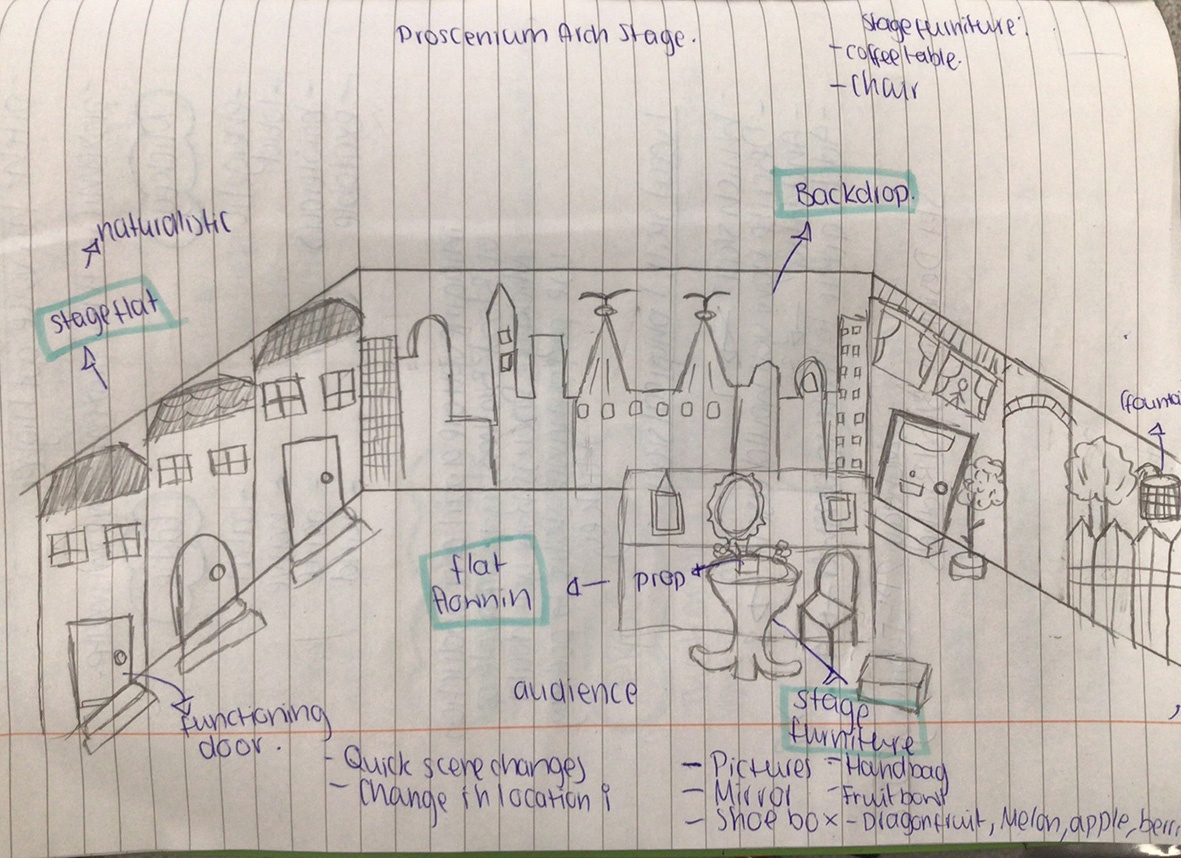 Proscenium Arch Stage.
Stage furniture:
- coffee table.
- Chair
Backdrop.
naturalistic
stage flat
flat
flownin
prop
audience
functioning
door.
- Quick scene changes
- Change in location
stage
furniture
- Pictures - Handbag
- Mirror - Fruit bowl
- Shoe box - Dragonfruit, Melon, apple,